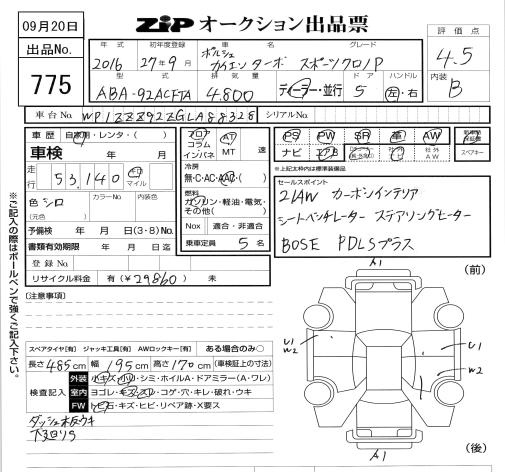 09月20日
ZIP オークション出品票
評価点
4.5
内装
B
出品No.
775
年式 初年度登録 車名 グレード
2016 27年9月 ポルシェ カイエンターボ スポーツクロノP
型式 排気量 ドア ハンドル
ABA-92ACFTA 4.800 ディーラー・並行 5 左・右
車台No. WP1ZZZ92ZGLA88328 シリアルNo.
車歴 自家用・レンタ・( )
車検 年 月
走行 53,140 キロ マイル
色 シロ カラーNo. 内装色
(元色)
予備検 年 月 日(3・8)No.
書類有効期限 年 月 日迄
登録No.
リサイクル料金 有(¥29860) 未
フロア
コラム
インパネ
AT
MT
速
冷房
無・C・AC・AAC・( )
燃料
ガソリン・軽油・電気・
その他( )
Nox 適合・非適合
乗車定員 5 名
PS PW SR 革 AW
ナビ
社外AW
スペアキー
※上記太枠内は標準装備品
セールスポイント
21AW カーボンインテリア
シートベンチレーター ステアリングヒーター
BOSE PDLSプラス
※ご記入の際はボールペンで強くご記入下さい。
[注意事項]
スペアタイヤ[有] ジャッキ工具[有] AWロックキー[有] ある場合のみ○
長さ 485cm 幅 195cm 高さ 170cm (車検証上の寸法)
検査記入
外装 小キズ・小凹・シミ・ホイルA・ドアミラー(A・ワレ)
室内 ヨゴレ・キズ・スレ・コゲ・穴・キレ・破れ・ウキ
FW トビ石・キズ・ヒビ・リペア跡・X要ス
ダッシュ板ウキ
下廻りサ
A1
(前)
U1
W2
U1
W2
A1
(後)